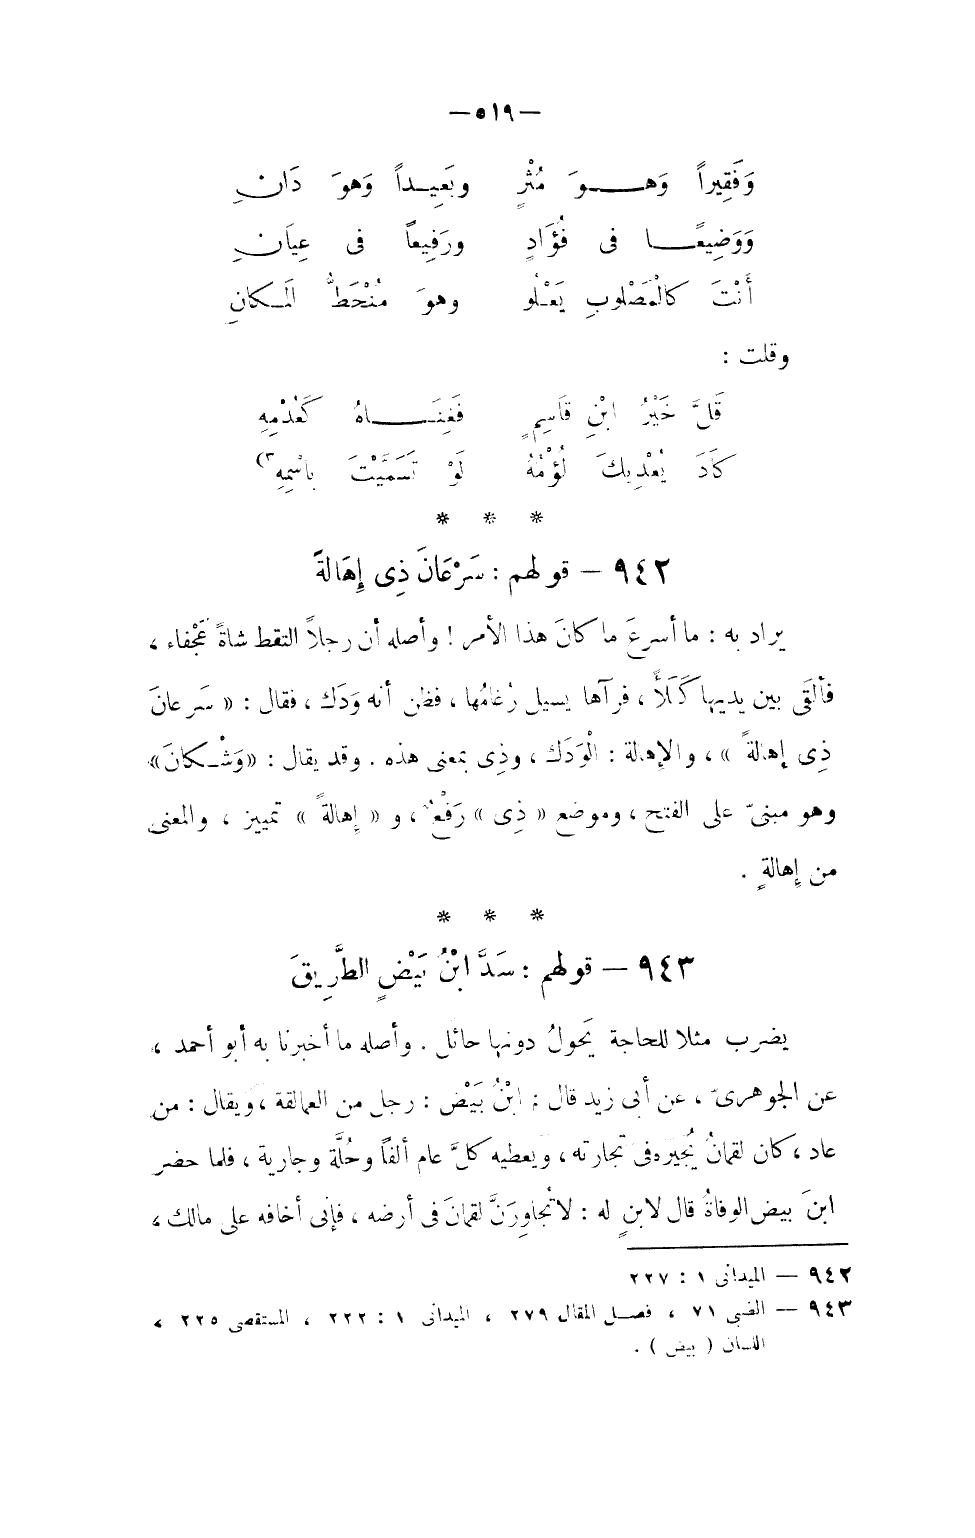 — ٥١٩ —
وَفَقِيراً وَهـــوَ مُثْرٍ وبَعِيـداً وَهوَ دَانِ
وَوَضِيعًــا فى فُؤَادٍ ورَفِيعاً فى عِيَانِ
أَنْتَ كالْمَصْلوبِ يَعْلُو وهوَ مُنْحَطُّ المـكانِ
وقلت :
قَلَّ خَيْرُ ابْنِ قَاسِمٍ فَغِنَــاهُ كَعُدْمِهِ
كَادَ يُعْدِيكَ لُؤْمُهُ لَوْ تَسَمَّيْتَ بِاسْمِهِ (٣)
* * *
٩٤٢ — قولهم : سَرْعَانَ ذِى إِهَالَةً
يراد به : ما أسرعَ ما كانَ هذا الأمر ! وأصله أن رجلاً التقط شاةً عَجْفاء ،
فألقَى بين يديها كَلَأً ، فرآها يسيل رُغامُها ، فظن أنه وَدَك ، فقال : « سَرعانَ
ذِى إهالةً » ، والإهالة : الْوَدَك ، وذِى بمعنى هذه . وقد يقال : «وَشْـكانَ»
وهو مبنىّ على الفتح ، وموضع « ذِى » رَفْعٌ ، و « إِهالةً » تمييز ، والمعنى
من إِهالةٍ .
* * *
٩٤٣ — قولهم : سَدَّ ابْنُ بَيْضٍ الطَّرِيقَ
يضرب مثلا للحاجة يَحولُ دونها حائل . وأصله ما أخبرنا به أبو أحمد ،
عن الجوهرىّ ، عن أبى زيد قال : ابْنُ بَيْض : رجل من العمالقة ، ويقال : من
عاد ، كان لقمانُ يُجيره فى تجارته ، ويعطيه كلَّ عام ألفاً وحُلَّة وجارية ، فلما حضر
ابنَ بيض الوفاةُ قال لابنٍ له : لا تُجاوِرَنَّ لقمانَ فى أرضه ، فإنى أخافه على مالك ،
٩٤٢ — الميدانى ١ : ٢٢٧
٩٤٣ — الضبى ٧١ ، فصـل المقال ٢٧٩ ، الميدانى ١ : ٢٢٢ ، المستقصى ٢٢٥ ،
اللسان ( بيض ) .